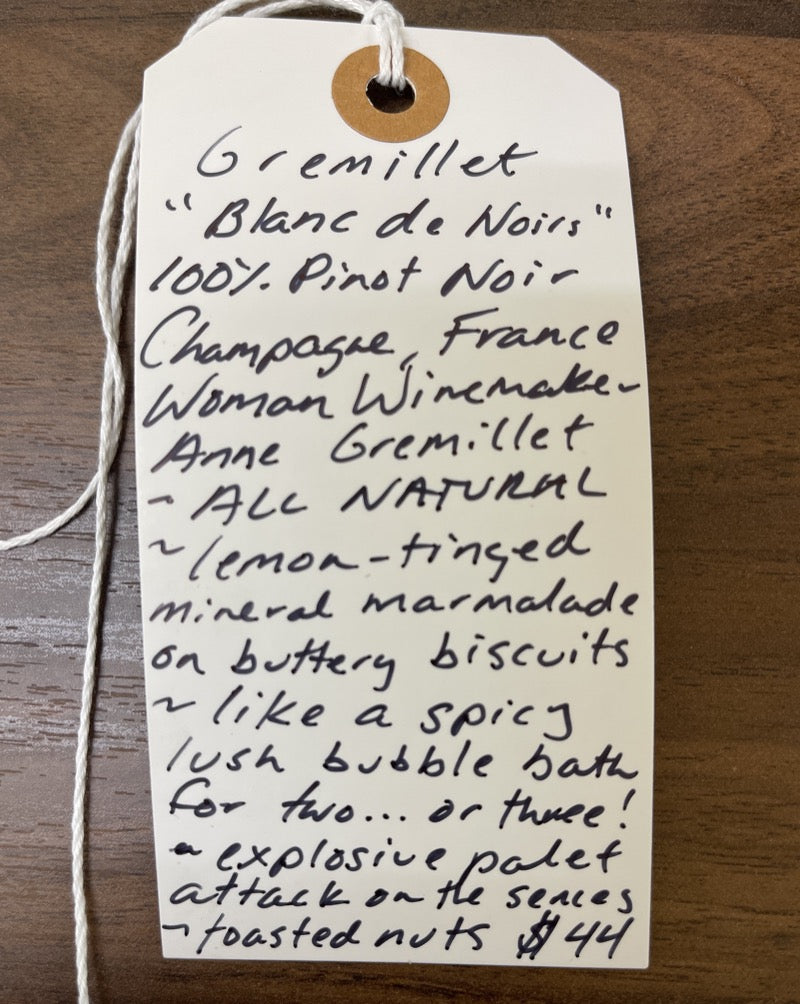 Gremillet
"Blanc de Noirs"
100% Pinot Noir
Champagne, France
Woman Winemaker
Anne Gremillet
- ALL NATURAL
~ lemon-tinged
mineral marmalade
on buttery biscuits
~ like a spicy
lush bubble bath
for two... or three!
~ explosive palet
attack on the sences
~ toasted nuts $44